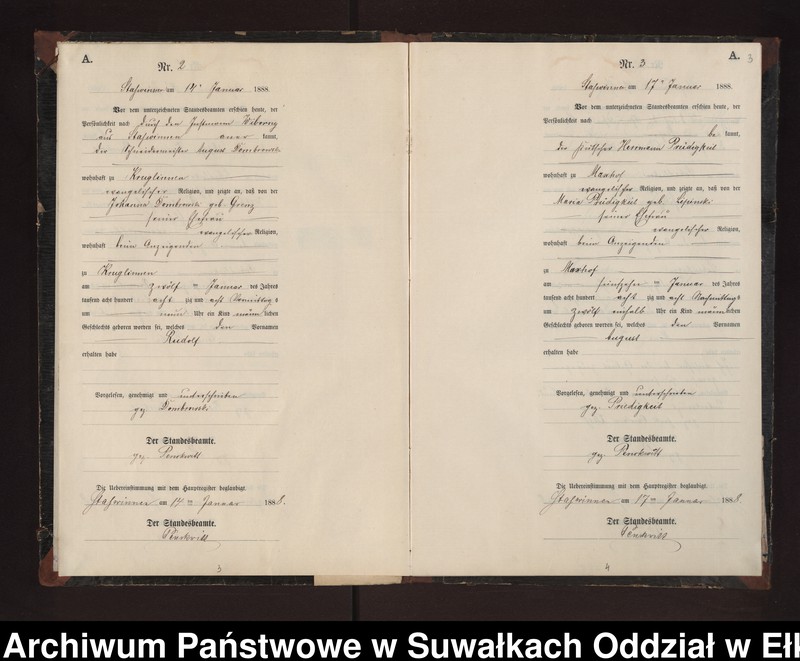 A.
Nr. 2
am 14ⁿ Januar 1888.
Vor dem unterzeichneten Standesbeamten erschien heute, der
Persönlichkeit nach durch den
aus kannt,
der Schneidermeister August
wohnhaft zu Kruglinnen
evangelischer Religion, und zeigte an, daß von der
Johanna geb.
seiner Ehefrau
evangelischer Religion,
wohnhaft beim Anzeigenden
zu Kruglinnen
am zwölf ten Januar des Jahres
tausend acht hundert acht zig und acht Vormittags
um neun Uhr ein Kind männlichen
Geschlechts geboren worden sei, welches den Vornamen
Rudolf
erhalten habe
Vorgelesen, genehmigt und unterschrieben
gez.
Der Standesbeamte.
gez.
Die Uebereinstimmung mit dem Hauptregister beglaubigt.
am 14ten Januar 1888.
Der Standesbeamte.
3
A. 3
Nr. 3
am 17ⁿ Januar 1888.
Vor dem unterzeichneten Standesbeamten erschien heute, der
Persönlichkeit nach
be kannt,
der Herrmann Priedigkeit
wohnhaft zu Maxhof
evangelischer Religion, und zeigte an, daß von der
Maria Priedigkeit geb.
seiner Ehefrau
evangelischer Religion,
wohnhaft beim Anzeigenden
zu Maxhof
am fünfzehn ten Januar des Jahres
tausend acht hundert acht zig und acht Nachmittags
um zwölf einhalb Uhr ein Kind männlichen
Geschlechts geboren worden sei, welches den Vornamen
August
erhalten habe
Vorgelesen, genehmigt und unterschrieben
gez. Priedigkeit
Der Standesbeamte.
gez.
Die Uebereinstimmung mit dem Hauptregister beglaubigt.
am 17ten Januar 1888
Der Standesbeamte.
4
Archiwum Państwowe w Suwałkach Oddział w Ełk